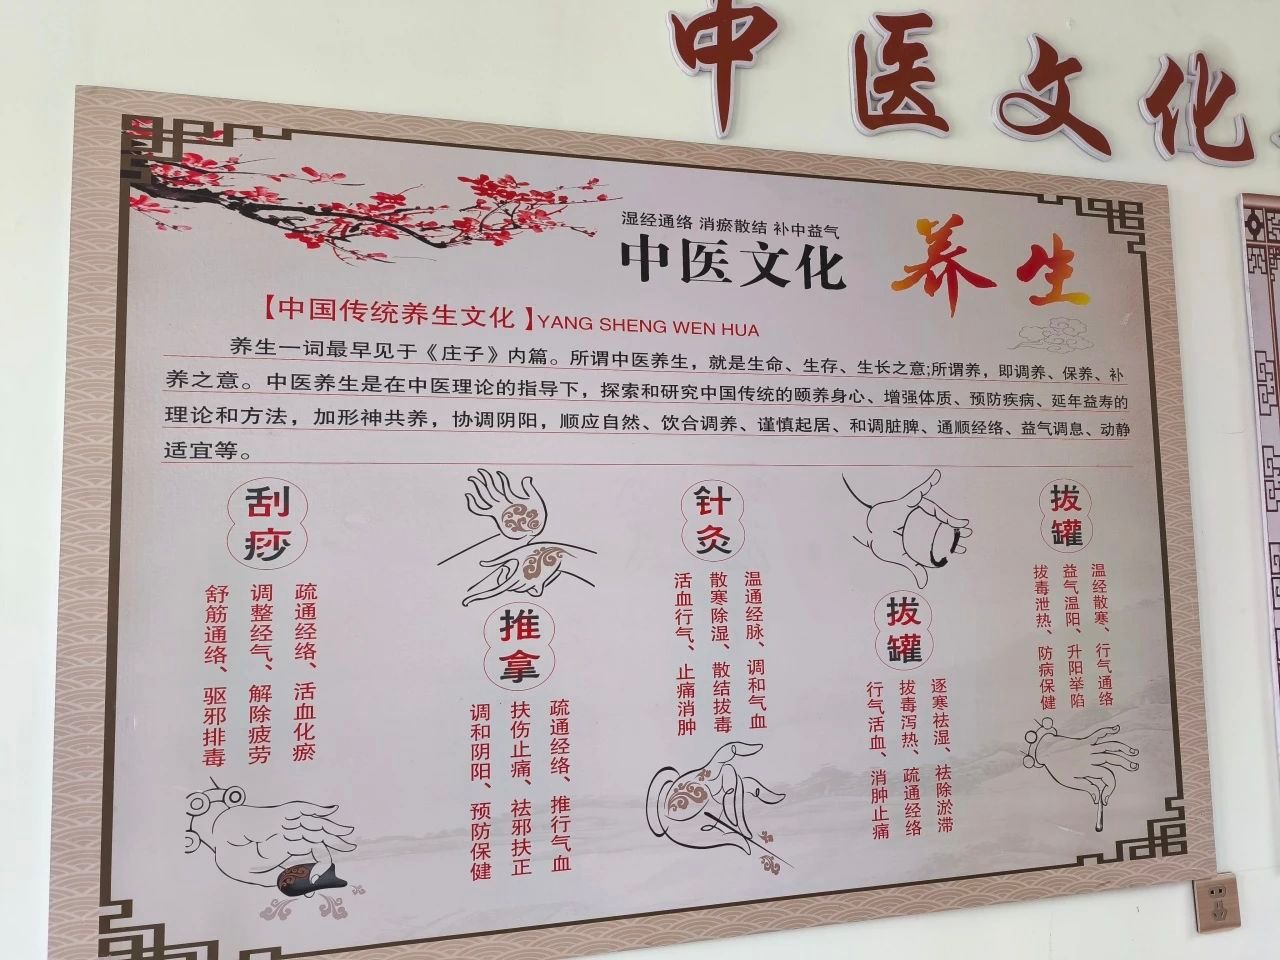 中医文化
湿经通络 消瘀散结 补中益气
中医文化 养生
【中国传统养生文化】YANG SHENG WEN HUA
养生一词最早见于《庄子》内篇。所谓中医养生，就是生命、生存、生长之意;所谓养，即调养、保养、补
养之意。中医养生是在中医理论的指导下，探索和研究中国传统的颐养身心、增强体质、预防疾病、延年益寿的
理论和方法，加形神共养，协调阴阳，顺应自然、饮合调养、谨慎起居、和调脏脾、通顺经络、益气调息、动静
适宜等。
刮痧
疏通经络、活血化瘀
调整经气、解除疲劳
舒筋通络、驱邪排毒
推拿
疏通经络、推行气血
扶伤止痛、祛邪扶正
调和阴阳、预防保健
针灸
温通经脉、调和气血
散寒除湿、散结拔毒
活血行气、止痛消肿
拔罐
逐寒祛湿、祛除淤滞
拔毒泻热、疏通经络
行气活血、消肿止痛
拔罐
温经散寒、行气通络
益气温阳、升阳举陷
拔毒泄热、防病保健